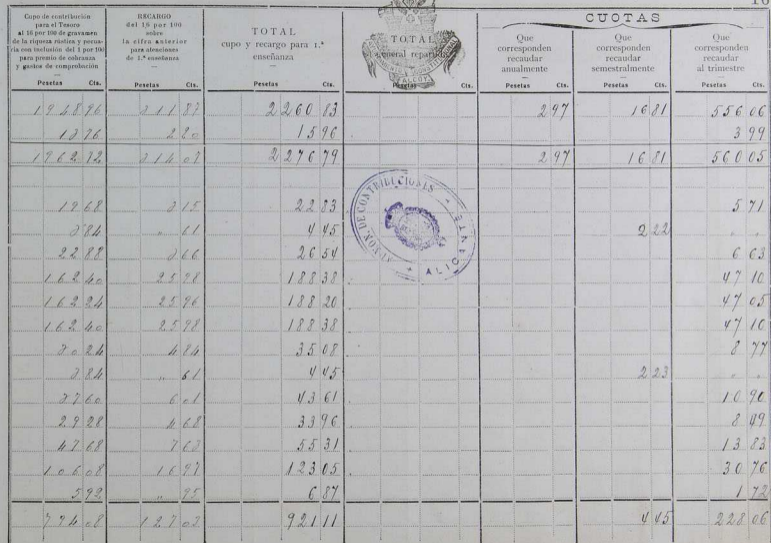 CUOTAS
Cupo de contribución
para el Tesoro
al 16 por 100 de gravamen
de la riqueza rústica y pecua-
ria con inclusión del 1 por 100
para premio de cobranza
y gastos de comprobación
RECARGO
del 16 por 100
sobre
la cifra anterior
para atenciones
de 1.ª enseñanza
TOTAL
cupo y recargo para 1.ª
enseñanza
TOTAL
general repartido
ALCOY
Que
corresponden
recaudar
anualmente
Que
corresponden
recaudar
semestralmente
Que
corresponden
recaudar
al trimestre
Pesetas Cts. Pesetas Cts. Pesetas Cts. Pesetas Cts. Pesetas Cts. Pesetas Cts. Pesetas Cts.
1948 96 311 87 2260 83 2 97 16 81 556 06
13 76 2 20 15 96 3 99
1962 72 314 07 2276 79 2 97 16 81 560 05
19 68 3 15 22 83 5 71
3 84 " 61 4 45 2 22 " "
22 88 3 66 26 54 6 63
162 40 25 98 188 38 47 10
162 24 25 96 188 20 47 05
162 40 25 98 188 38 47 10
30 24 4 84 35 08 8 77
3 84 " 61 4 45 2 23 " "
37 60 6 01 43 61 10 90
29 28 4 68 33 96 8 49
47 68 7 63 55 31 13 83
106 08 16 97 123 05 30 76
5 92 " 95 6 87 1 72
794 08 127 03 921 11 4 45 228 06
DE CONTRIBUCIONES
ALICANTE